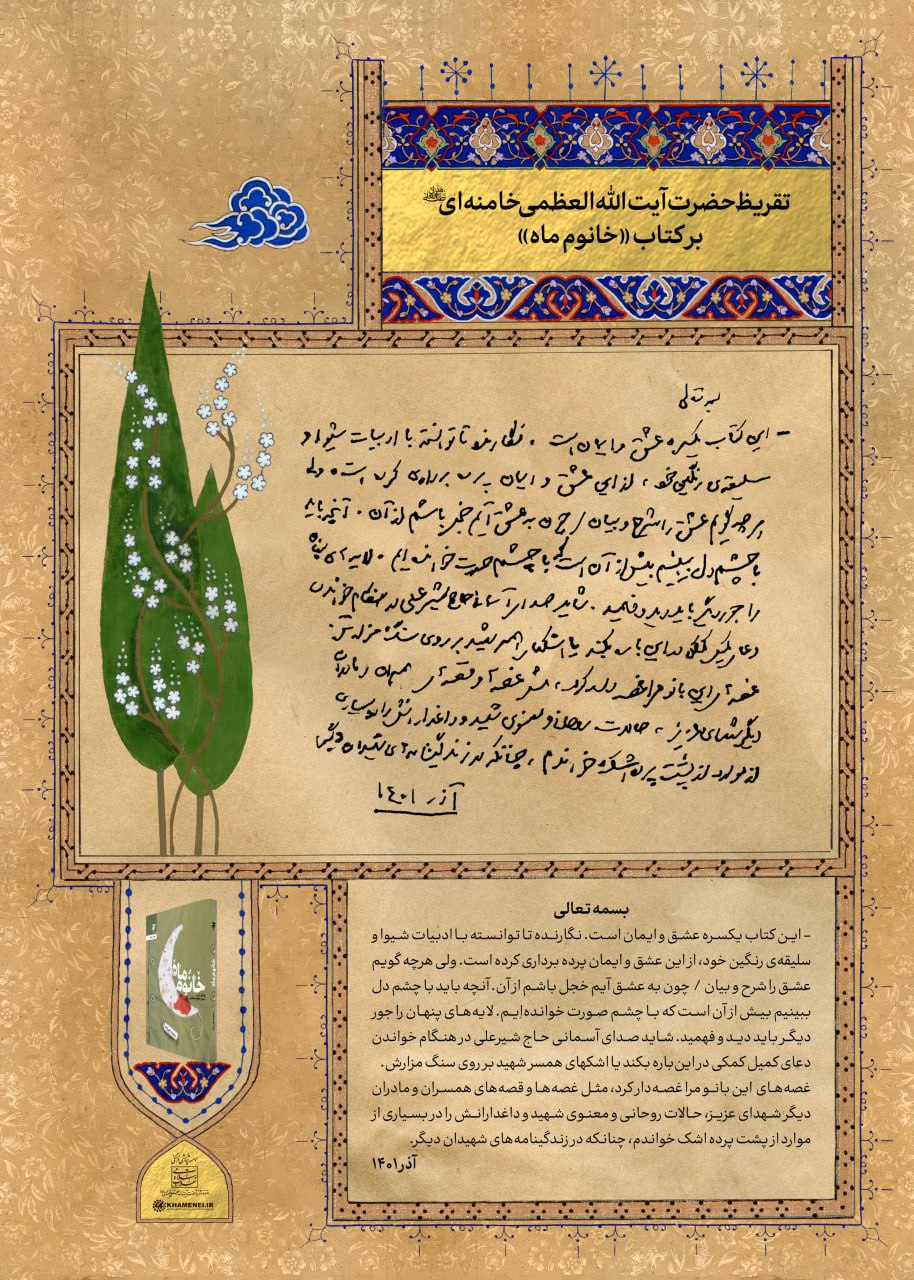 تقریظ حضرت آیت الله العظمی خامنه‌ای
بر کتاب «خانوم ماه»
بسمه تعالی
– این کتاب یکسره عشق و ایمان است. نگارنده تا توانسته با ادبیات شیوا و
سلیقه‌ی رنگین خود، از این عشق و ایمان پرده برداری کرده است. ولی
هر چه گویم عشق را شرح و بیان / چون به عشق آیم خجل باشم از آن. آنچه باید
با چشم دل ببینیم بیش از آن است که با چشم صورت خوانده‌ایم. لایه‌های پنهان
را جور دیگر باید دید و فهمید. شاید صدای آسمانی حاج شیرعلی در هنگام خواندن
دعای کمیل کمکی در این باره بکند یا اشکهای همسر شهید بر روی سنگ مزارش.
غصه‌های این بانو مرا غصه‌دار کرد، مثل غصه‌ها و قصه‌های همسران و مادران
دیگر شهدای عزیز، حالات روحانی و معنوی شهید و داغدارانش را در بسیاری
از موارد از پشت پرده اشک خواندم، چنانکه در زندگینامه‌های شهیدان دیگر.
آذر ۱۴۰۱
بسمه تعالی
– این کتاب یکسره عشق و ایمان است. نگارنده تا توانسته با ادبیات شیوا و
سلیقه‌ی رنگین خود، از این عشق و ایمان پرده برداری کرده است. ولی هرچه گویم
عشق را شرح و بیان / چون به عشق آیم خجل باشم از آن. آنچه باید با چشم دل
ببینیم بیش از آن است که با چشم صورت خوانده‌ایم. لایه‌های پنهان را جور
دیگر باید دید و فهمید. شاید صدای آسمانی حاج شیرعلی در هنگام خواندن
دعای کمیل کمکی در این باره بکند یا اشکهای همسر شهید بر روی سنگ مزارش.
غصه‌های این بانو مرا غصه‌دار کرد، مثل غصه‌ها و قصه‌های همسران و مادران
دیگر شهدای عزیز، حالات روحانی و معنوی شهید و داغدارانش را در بسیاری از
موارد از پشت پرده اشک خواندم، چنانکه در زندگینامه‌های شهیدان دیگر.
آذر ۱۴۰۱
خانوم ماه
خانوم ماه
KHAMENEI.IR